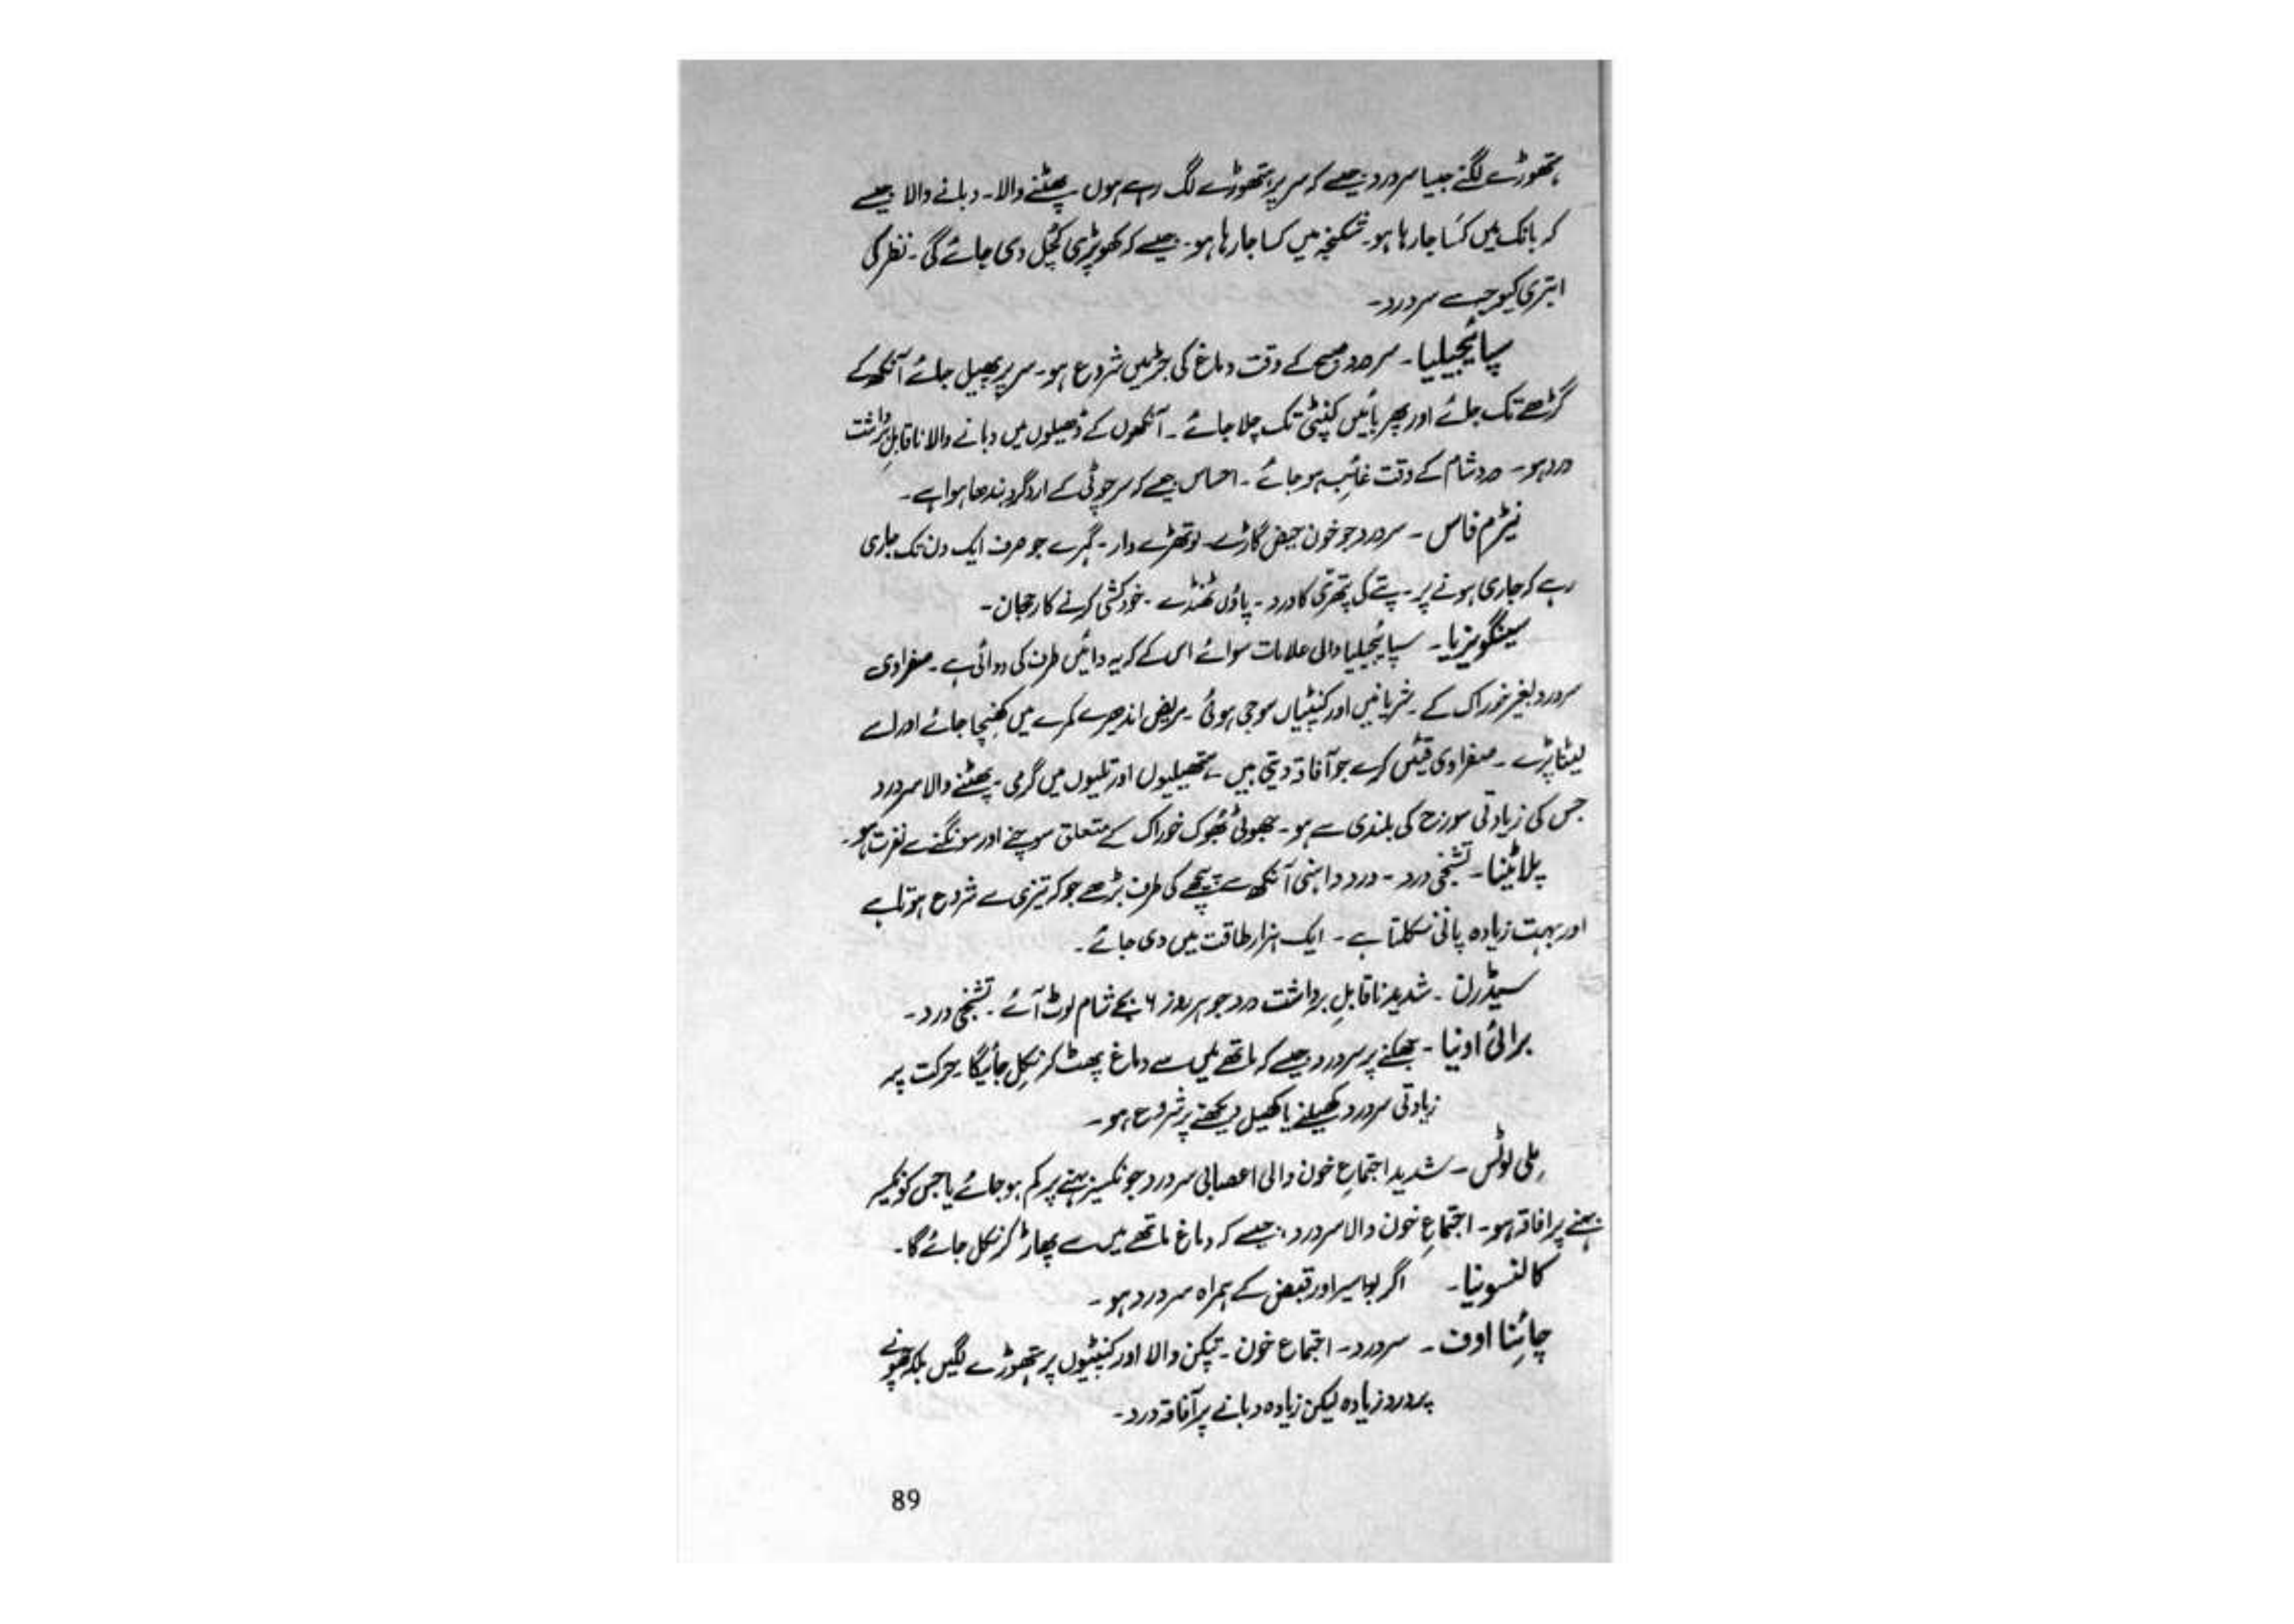 ہتھوڑے لگنے جیسا سردرد جیسے کہ سر پر ہتھوڑے لگ رہے ہوں پھٹنے والا۔ دبانے والا جیسے
کہ بانک میں کَسا جا رہا ہو۔ شکنجہ میں کسا جا رہا ہو۔ جیسے کہ کھوپڑی کچل دی جائے گی۔ نظر کی
ابتری کیوجہ سے سردرد۔
سپائیجیلیا۔ سردرد صبح کے وقت دماغ کی جڑ میں شروع ہو۔ سر پر پھیل جائے آنکھ کے
گڑھے تک جائے اور پھر بائیں کنپٹی تک چلا جائے۔ آنکھوں کے ڈھیلوں میں دبانے والا ناقابلِ برداشت
درد ہو۔ درد شام کے وقت غائب ہو جائے۔ احساس جیسے کہ سر چوٹی کے اردگرد بندھا ہوا ہے۔
نیٹرم فاس۔ سردرد جو خون حیض گاڑے۔ لوتھڑے دار۔ گہرے جو صرف ایک دن تک جاری
رہے کہ جاری ہونے پر۔ پتے کی پتھری کا درد۔ پاؤں ٹھنڈے۔ خودکشی کرنے کا رجحان۔
سینگویزیا۔ سپائیجیلیا والی علامات سوائے اس کے کہ یہ دائیں طرف کی دوائی ہے۔ صفراوی
سردرد بغیر خوراک کے۔ شریانیں اور کنپٹیاں سوجی ہوئی۔ مریض اندھیرے کمرے میں کھنچا جائے اور اسے
لیٹنا پڑے۔ صفراوی قیئں کرے جو آفاقہ دیتی ہیں۔ ہتھیلیوں اور تلیوں میں گرمی۔ پھٹنے والا سردرد
جس کی زیادتی سورج کی بلندی سے ہو۔ جھوٹی بھُوک خوراک کے متعلق سوچنے اور سونگنے سے نفرت ہو۔
پلاٹینا۔ تشنجی درد۔ درد داہنی آنکھ سے پیچھے کی طرف بڑھے جو کہ تیزی سے شروع ہوتا ہے
اور بہت زیادہ پانی نکلتا ہے۔ ایک ہزار طاقت میں دی جائے۔
سیڈرن۔ شدید ناقابلِ برداشت درد جو ہر روز ۶ بجے شام لوٹ آئے۔ تشنجی درد۔
برائی اونیا۔ جھکنے پر سردرد جیسے کہ ماتھے میں سے دماغ پھٹ کر نکل جائیگا۔ حرکت پر
زیادتی سردرد کھیلنے یا کھیل دیکھنے پر شروع ہو۔
ملی لوٹس۔ شدید اجتماعِ خون والی اعصابی سردرد جو نکسیر بہنے پر کم ہو جائے یا جس کو نکسیر
بہنے پر افاقہ ہو۔ اجتماعِ خون والا سردرد، جیسے کہ دماغ ماتھے میں سے پھاڑ کر نکل جائے گا۔
کالنسونیا۔ اگر بواسیر اور قبض کے ہمراہ سردرد ہو۔
چائِنا اوف۔ سردرد۔ اجتماع خون۔ تپکن والا اور کنپٹیوں پر ہتھوڑے لگیں بلکہ چھونے
پر درد زیادہ لیکن زیادہ دبانے پر آفاقہ درد۔
89